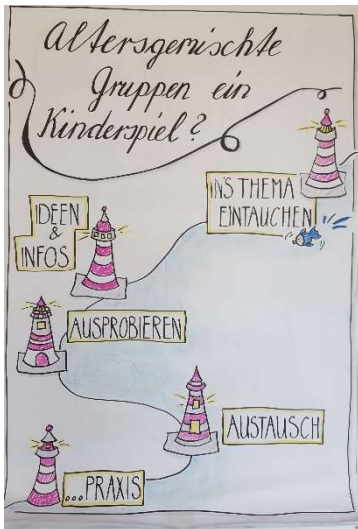 Altersgemischte
Gruppen ein
Kinderspiel?
IN'S THEMA
EINTAUCHEN
IDEEN
&
INFOS
AUSPROBIEREN
AUSTAUSCH
...PRAXIS